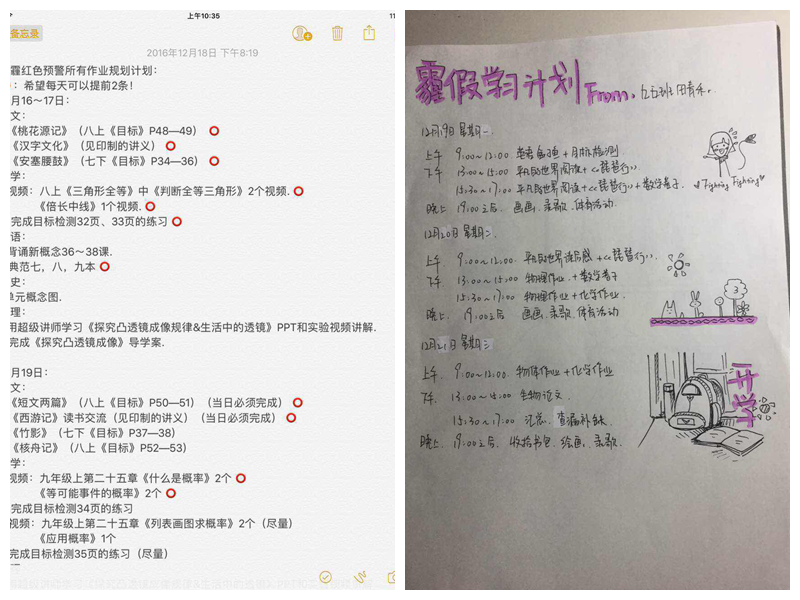 上午10:35
11
备忘录
2016年12月18日 下午8:19
霾红色预警所有作业规划计划：
：希望每天可以提前2条！
月16～17日：
文：
《桃花源记》（八上《目标》P48—49）
《汉字文化》（见印制的讲义）
《安塞腰鼓》（七下《目标》P34—36）
学：
视频：八上《三角形全等》中《判断全等三角形》2个视频.
《倍长中线》1个视频.
完成目标检测32页、33页的练习
语：
背诵新概念36～38课.
典范七，八，九本
史：
单元概念图.
理：
用超级讲师学习《探究凸透镜成像规律&生活中的透镜》PPT和实验视频讲解.
完成《探究凸透镜成像》导学案.
月19日：
文：
《短文两篇》（八上《目标》P50—51）（当日必须完成）
《西游记》读书交流（见印制的讲义）（当日必须完成）
《竹影》（七下《目标》P37—38)
《核舟记》（八上《目标》P52—53)
学：
视频：九年级上第二十五章《什么是概率》2个
《等可能事件的概率》2个
完成目标检测34页的练习
视频：九年级上第二十五章《列表画图求概率》2个（尽量）
《应用概率》1个
完成目标检测35页的练习（尽量）
霾假学习计划 From. 九五班 田青禾.
12月19日 星期一.
上午 9:00~12:00 +月队检测
下午 13:00~15:00 平凡的世界阅读+《琵琶行》.
15:30~17:00 平凡的世界阅读+《琵琶行》+数学卷子.
晚上 19:00之后. 画画.录歌.体育活动.
Fighting Fighting
12月20日 星期二.
上午 9:00~12:00. 平凡的世界读后感 +《琵琶行》.
下午 13:00~15:00 物理作业.+数学卷子
15:30~17:00 物理作业+化学作业.
晚上 19:00之后 画画.录歌.体育活动
3
12月21日 星期三
上午. 9:00~12:00. 物理作业+化学作业
下午. 13:00~15:00 生物论文.
15:30~17:00 汇总.查漏补缺.
晚上. 19:00之后. 收拾书包.绘画.录歌.
开学